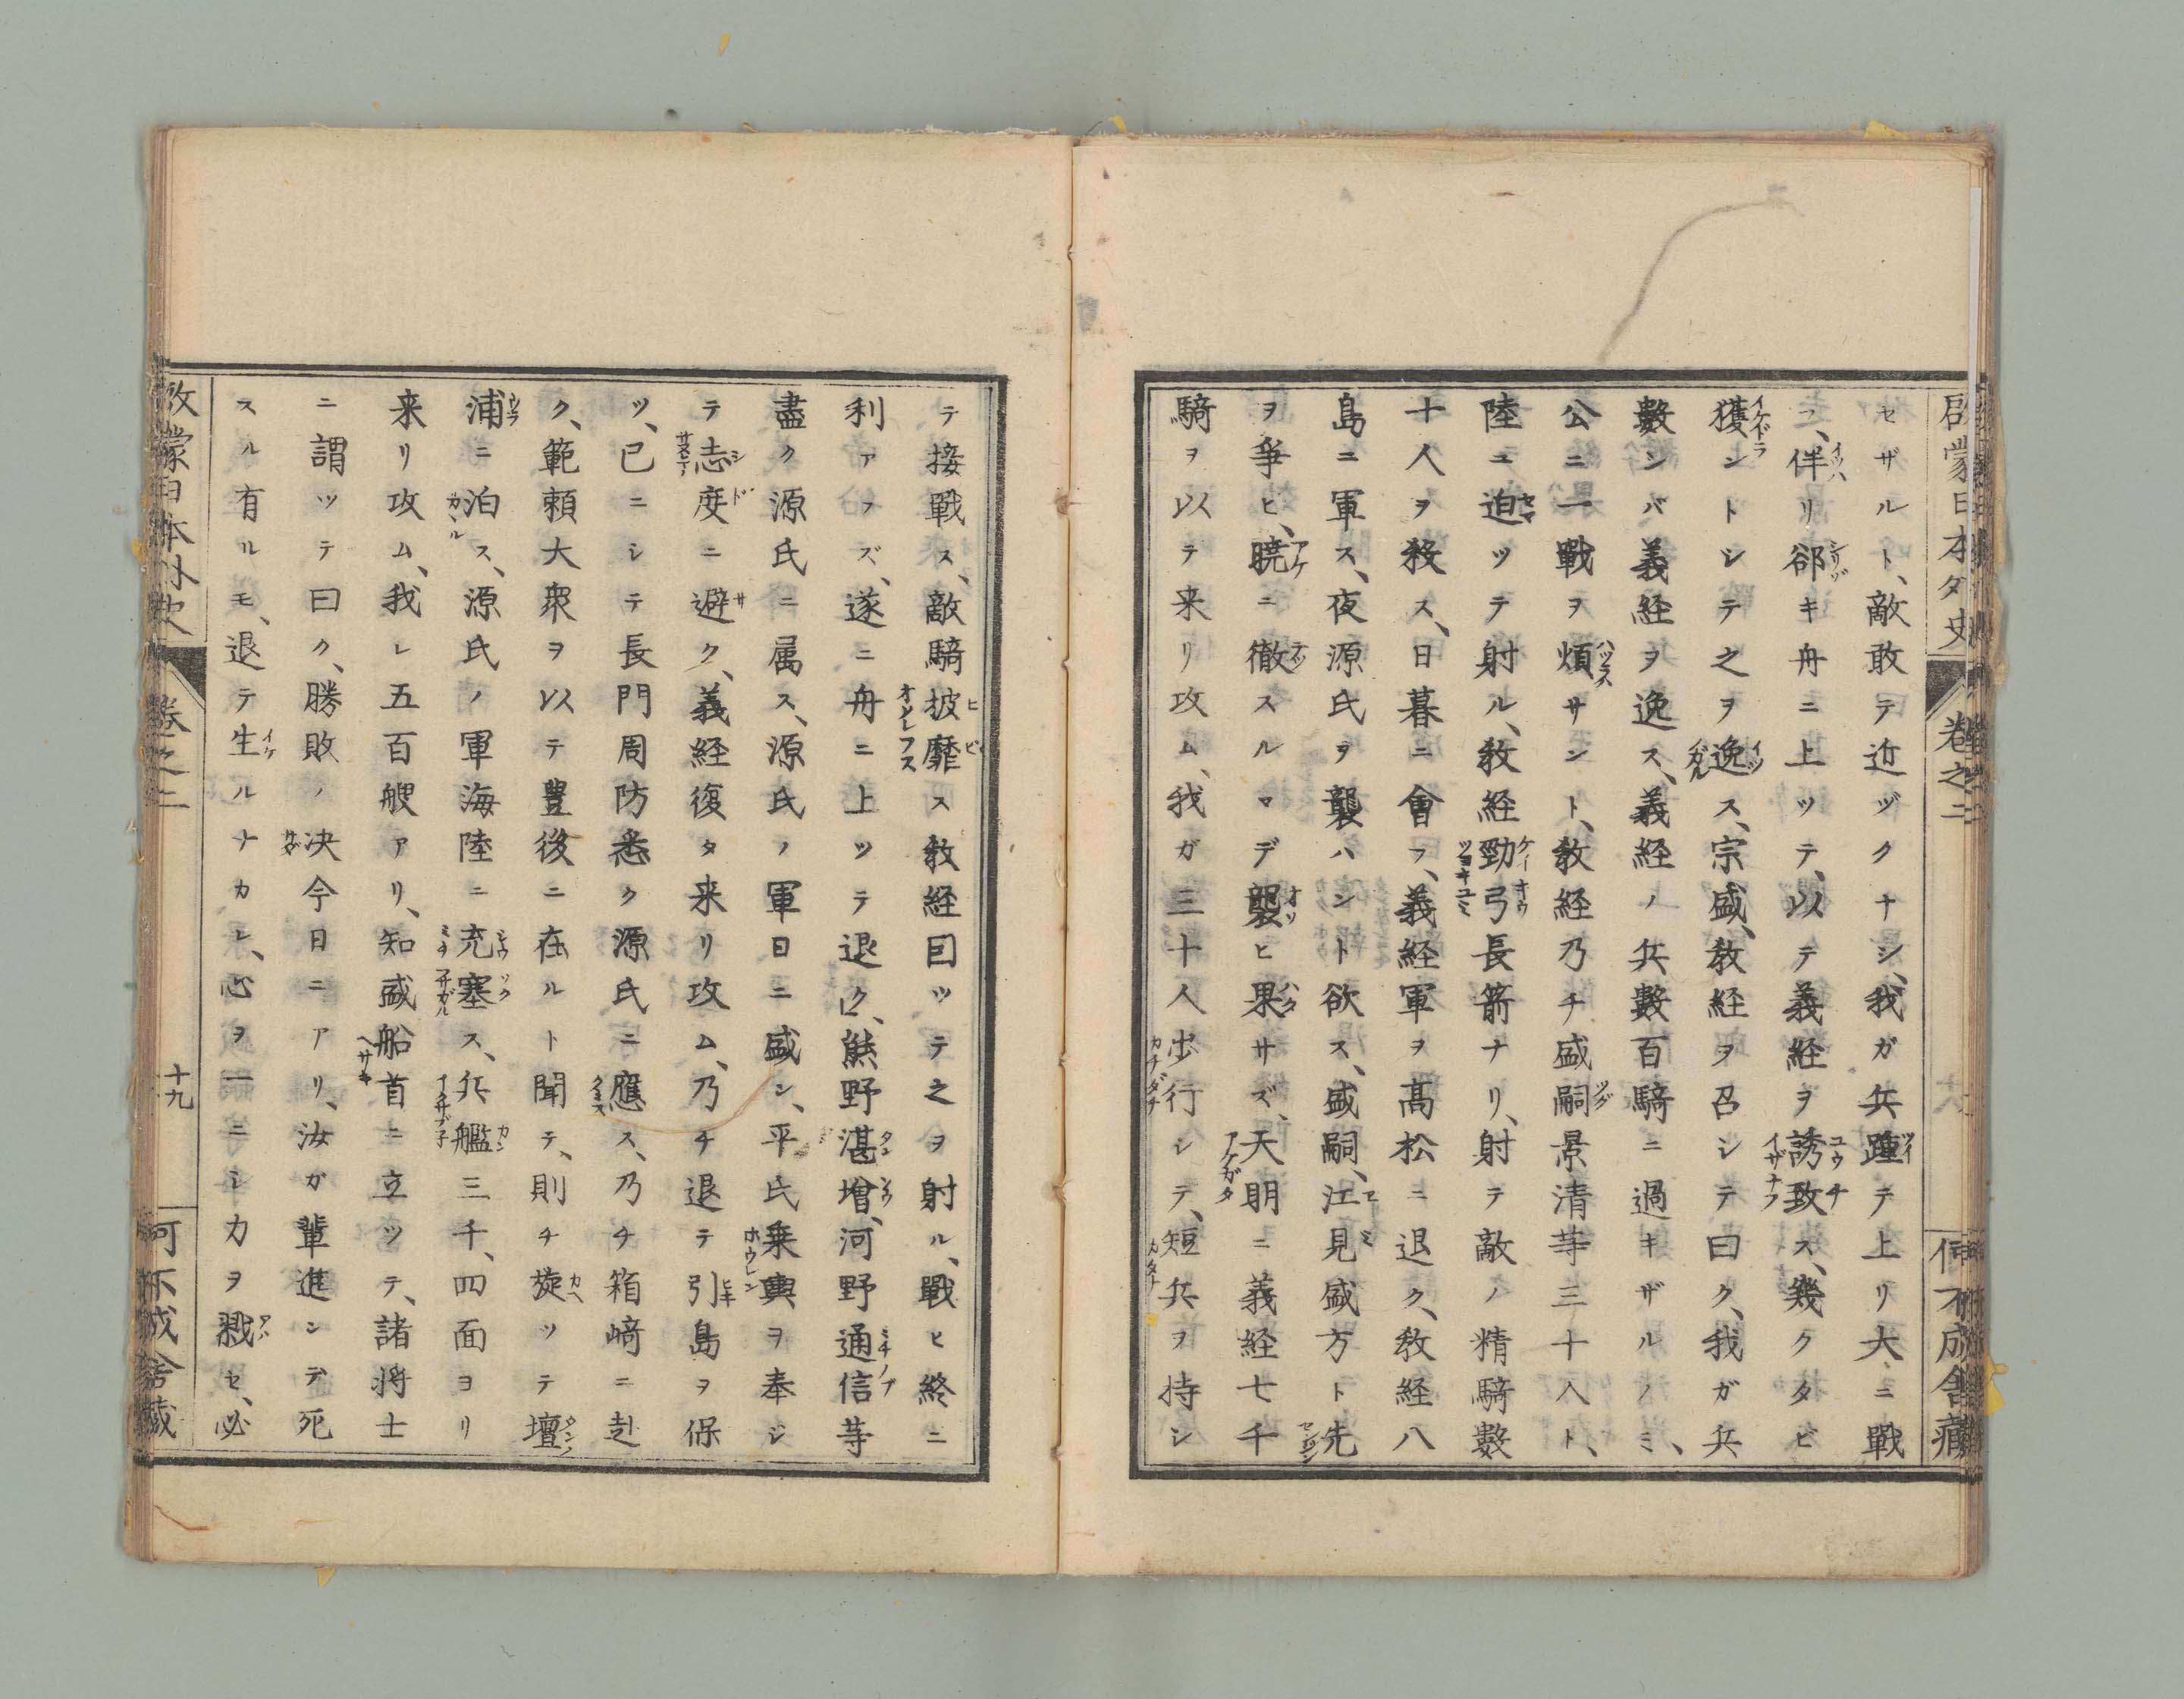 啓蒙日本外史 卷之二 何不成舍藏
セザルト、敵敢テ近ヅクナシ、我ガ兵踵テ上リ大ニ戰
フ、佯リ郤キ舟ニ上ツテ、以テ義経ヲ誘致ス、幾クタビ
獲ントシテ之ヲ逸ス、宗盛、教経ヲ召シテ曰ク、我ガ兵
數ンバ義経ヲ逸ス、義経ノ兵數百騎ニ過キザルノミ、
公ニ一戰ヲ煩サント、教経乃チ盛嗣景清等三十人ト、
陸ニ迫ツテ射ル、教経勁弓長箭ナリ、射テ敵ノ精騎數
十人ヲ殺ス、日暮ニ會フ、義経軍ヲ髙松ニ退ク、教経八
島ニ軍ス、夜源氏ヲ襲ハント欲ス、盛嗣、江見盛方ト先
ヲ爭ヒ、暁ニ徹スルマデ襲ヒ果サズ、天明ニ義経七千
騎ヲ以テ来リ攻ム、我ガ三十人歩行シテ、短兵ヲ持シ
テ接戰ス、敵騎披靡ス教経囙ツテ之ヲ射ル、戰ヒ終ニ
利アラズ、遂ニ舟ニ上ツテ退ク、熊野湛増、河野通信等
盡ク源氏ニ属ス、源氏ノ軍日ニ盛ン、平氏乗輿ヲ奉ジ
テ志度ニ避ク、義経復タ来リ攻ム、乃チ退テ引島ヲ保
ツ、已ニシテ長門周防悉ク源氏ニ應ス、乃チ箱﨑ニ赴
ク、範頼大衆ヲ以テ豊後ニ在ルト聞テ、則チ旋ツテ壇
浦ニ泊ス、源氏ノ軍海陸ニ充塞ス、兵艦三千、四面ヨリ
来リ攻ム、我レ五百艘アリ、知盛船首ニ立ツテ、諸将士
ニ謂ツテ曰ク、勝敗ノ决今日ニアリ、汝ガ輩進ンデ死
スル有ルモ、退テ生ルナカレ、心ヲ一ニシカヲ戮セ、必
啓蒙日本外史 卷之二 十九 何不成舍藏